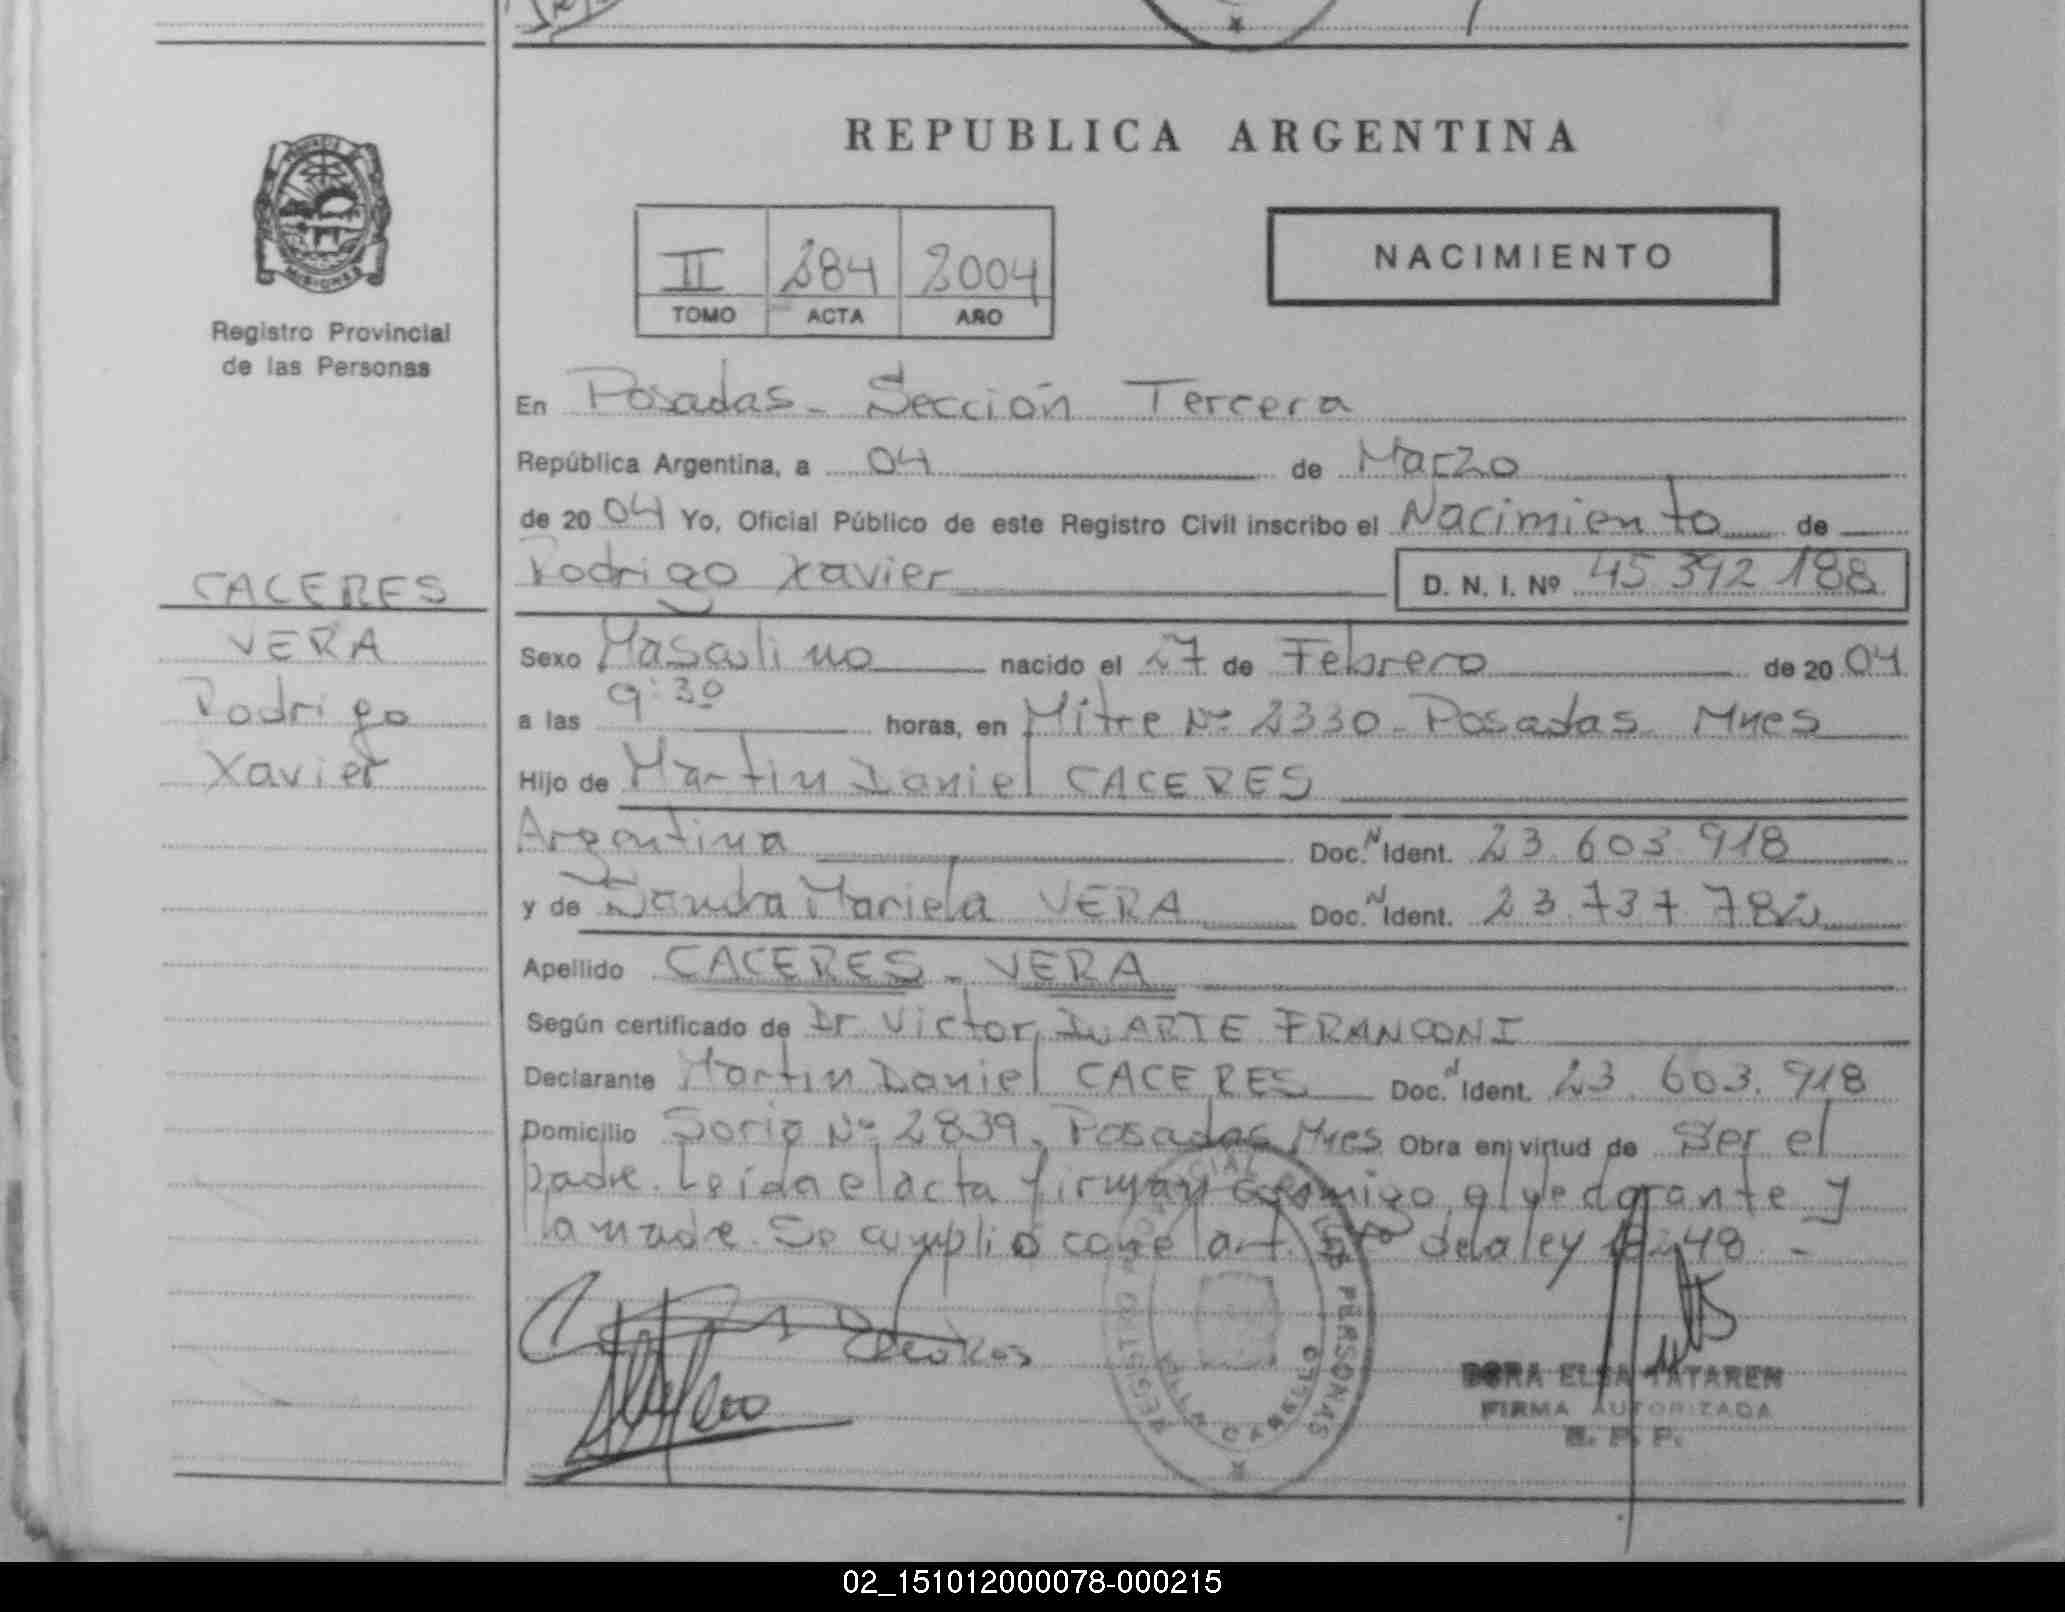 REPUBLICA ARGENTINA
II 284 2004
TOMO ACTA AÑO
NACIMIENTO
Registro Provincial
de las Personas
CACERES
VERA
Rodrigo
Xavier
En Posadas - Sección Tercera
República Argentina, a 04 de Marzo
de 2004 Yo, Oficial Público de este Registro Civil inscribo el Nacimiento de
Rodrigo Xavier D. N. I. Nº 45.392.188
Sexo Masculino nacido el 27 de Febrero de 2004
a las 9:30 horas, en Mitre Nº 2330 - Posadas - Mnes
Hijo de Martin Daniel CACERES
Argentina Doc. N Ident. 23.603.918
y de Sandra Mariela VERA Doc. N Ident. 23.737.782
Apellido CACERES - VERA
Según certificado de Dr. Victor DUARTE FRANCONI
Declarante Martin Daniel CACERES Doc. N Ident. 23.603.918
Domicilio Nº 2839, Posadas Mnes Obra en virtud de Ser el
padre. Leída el acta firman conmigo, el declarante y
la madre. Se cumplió con el art. de la ley 18248 -
REGISTRO PROVINCIAL DE LAS PERSONAS
VILLA CABELLO
DORA ELSA TATAREN
FIRMA AUTORIZADA
R. P. P.
02_151012000078-000215